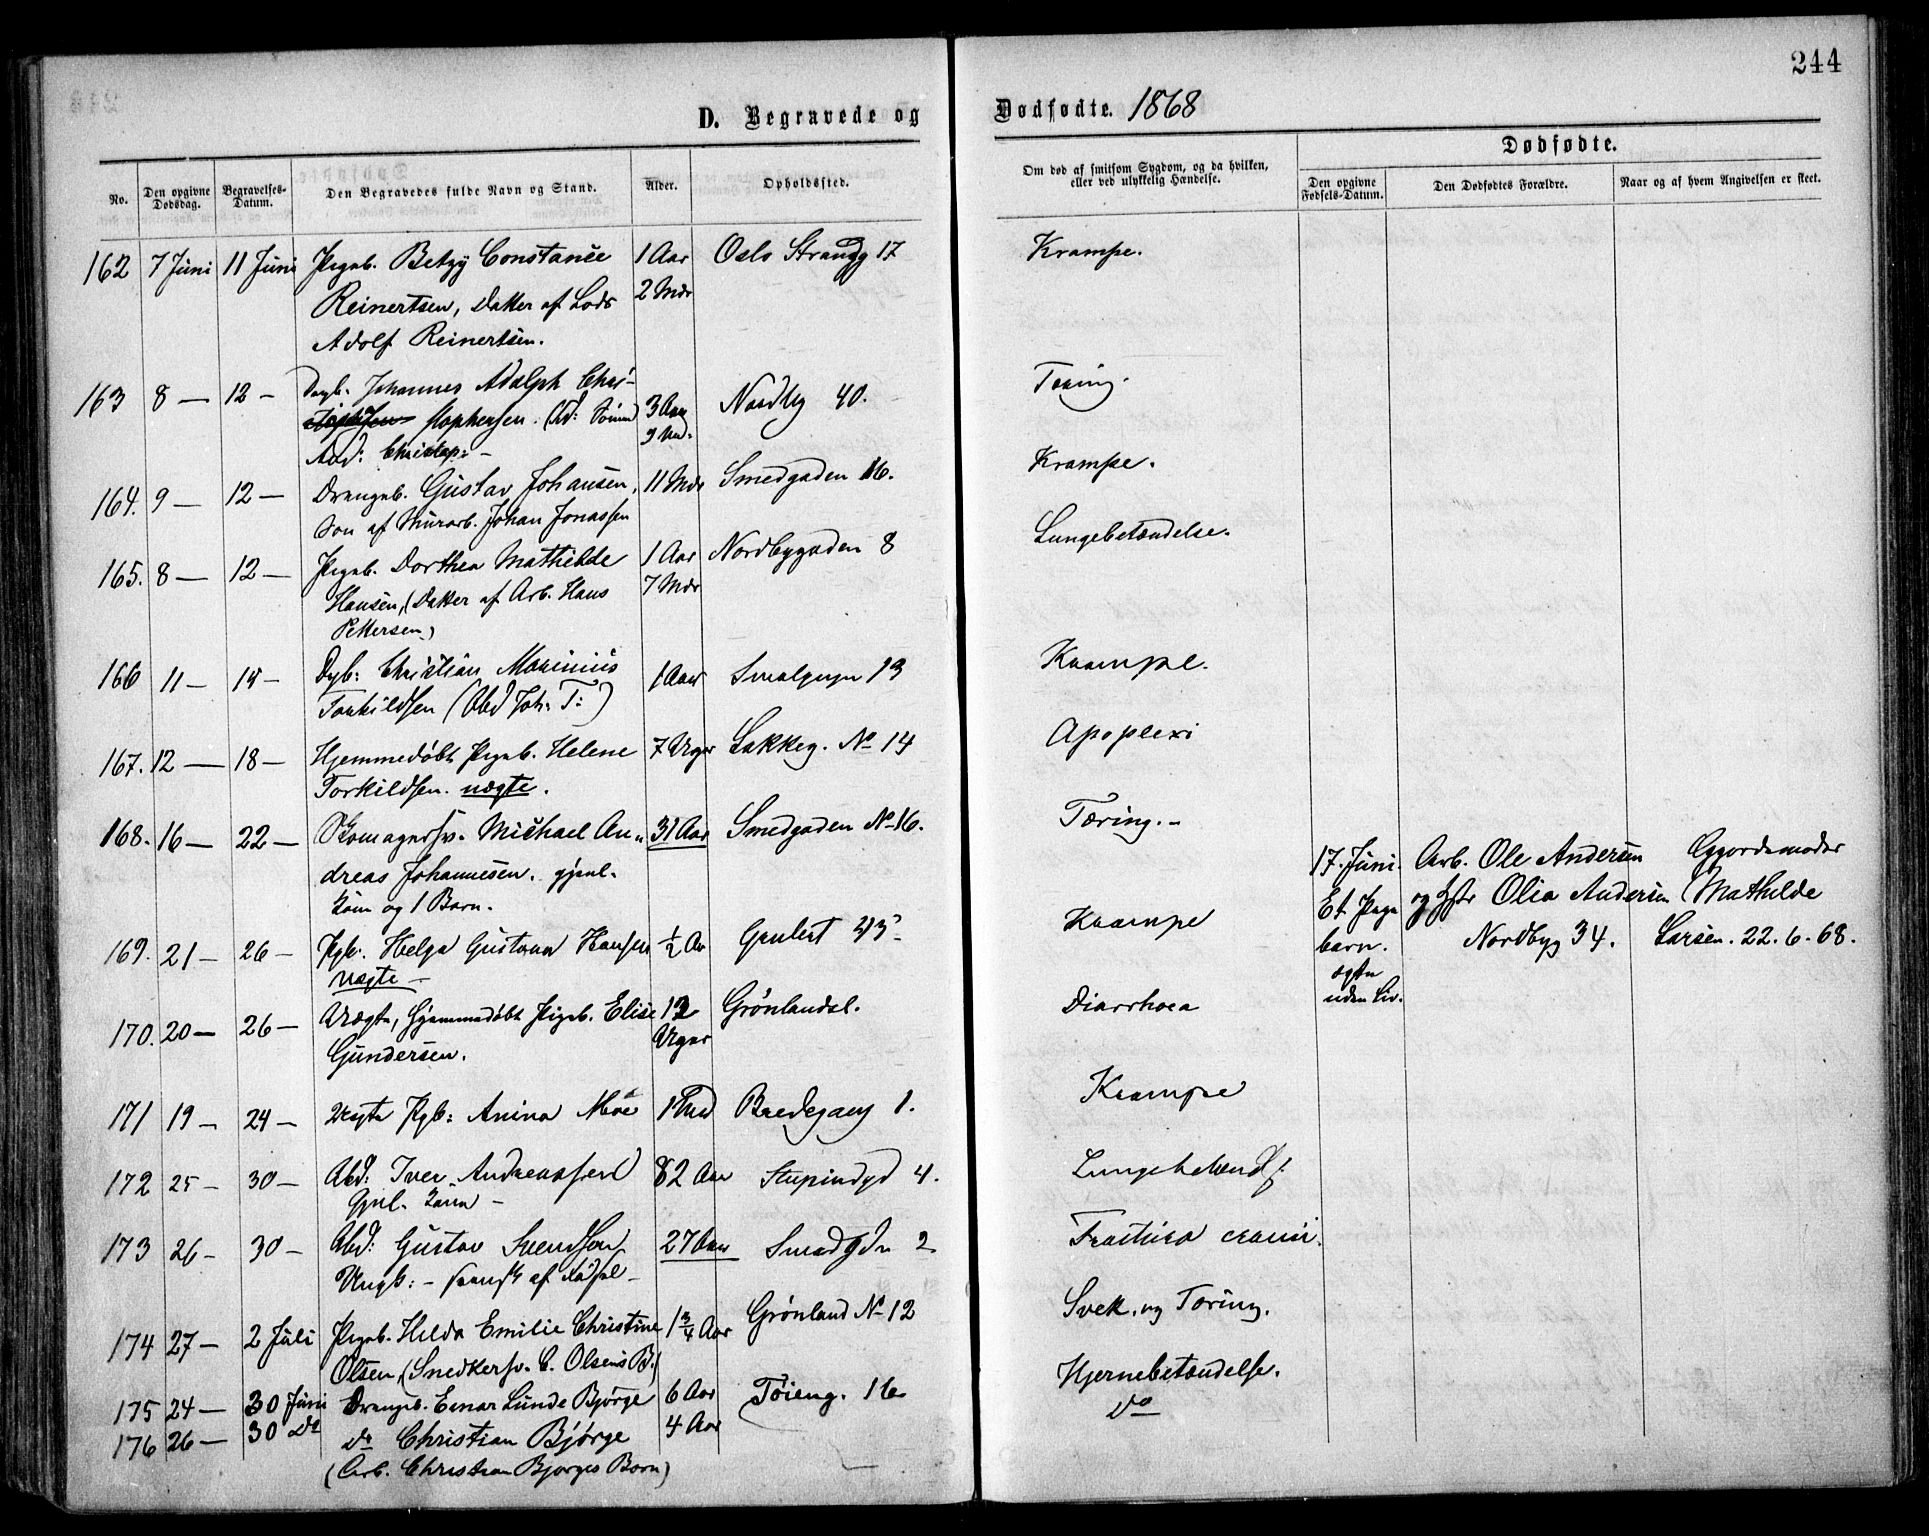 244
D. Begravede og Dødfødte. 1868
No.
Den opgivne Dødsdag.
Begravelses-Datum.
Den Begravedes fulde Navn og Stand.
Alder.
Opholdssted.
Om død af smitsom Sygdom, og da hvilken,
eller ved ulykkelig Hændelse.
Dødfødte.
Den opgivne Fødsels-Datum.
Den Dødfødtes Forældre.
Naar og af hvem Angivelsen er skeet.
162 7 Juni 11 Juni Pigeb. Betzy Constance 1 Aar Oslo Strandg 17 Krampe.
Reinertsen, Datter af Lods 2 Mdr
Adolf Reinertsen.
163 8 — 12 — Dgb. Johannes Adolph Chri- 3 Aar Nordbg 40. Tæring.
stophersen. 9 Md.
And: Christop: —
164. 9 — 12 — Drengeb. Gustav Johansen, 11 Mdr Smedgaden 16. Krampe.
Søn af Murarb. Johan Jonassen
165. 8 — 12 — Pigeb. Dorthea Mathilde 1 Aar Nordbygaden 8 Lungebetændelse.
Hansen, (Datter af Arb. Hans 7 Mdr
Pettersen)
166 11 — 15 — Dgb: Christian Marinius 1 Aar Smalgngn 13 Krampe.
Torkildsen (Abd Joh. T:)
167. 12 — 18 — Hjemmedøbt Pigeb. Helene 7 Uger Lakkeg. No 14 Apoplexi
Torkildsen. uægte.
168. 16 — 22 — Skomagersv. Michael An- 31 Aar Smedgaden No 16. Tæring. —
dreas Johannesen. gjenl.
Kone og 1 Barn.
17. Juni. Arb. Ole Andersen Gjordemoder
Et Pige og Hstr Olia Andersen Mathilde
barn. Nordbyg 34. Larsen. 22. 6. 68.
ægte
uden Liv.
169. 21 — 26 — Pgb. Helga Gustava Hansen ½ Aar Krampe
uægte —
170. 20 — 26 — Uægte, Hjemmedøbt Pigeb. Elise 12 Grønlandsl. Diarrhoea
Gundersen. Uger
171 19 — 24 — Uægte Pgb: Anina Moe 1 Md Bredegang 1. Krampe
172 25 — 30 — Abd: Iver Andreassen 82 Aar Stupindgd 4. Lungebetænds:
Gjnl. Kone —
173 26 — 30 — Abd: Gustav Svendsen 27 Aar Smedgdn 2 Fractura cranii.
Ungk: — svensk af Fødsel —
174 27 — 2 Juli Pigeb. Hilda Emilie Christine 1¾ Aar Grønland No 12 Svek. og Tæring.
Olsen, (Snedkersv. C. Olsens B.)
175 24 — 30 Juni Drengeb. Einar Lunde Bjørge 6 Aar Tøieng. 16 Hjernebetændelse.
176 26 — 30 Do Do Christian Bjørge 4 Aar Do
(Arb. Christian Bjørges Børn)